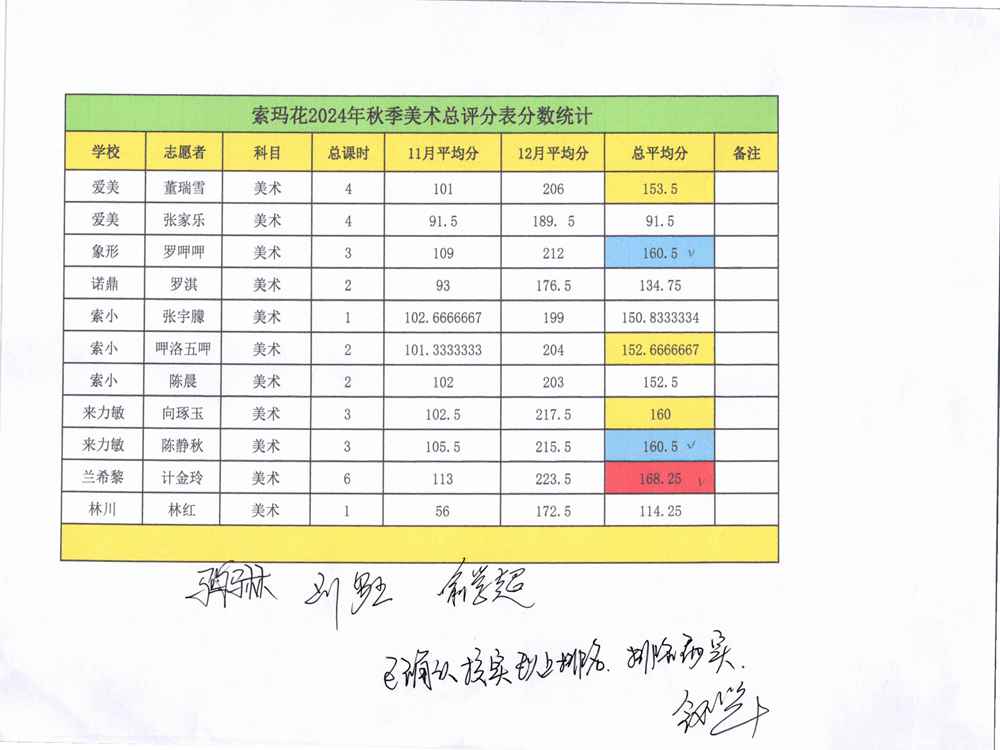 索玛花2024年秋季美术总评分表分数统计
学校 志愿者 科目 总课时 11月平均分 12月平均分 总平均分 备注
爱美 董瑞雪 美术 4 101 206 153.5
爱美 张家乐 美术 4 91.5 189. 5 91.5
象形 罗呷呷 美术 3 109 212 160.5 √
诺鼎 罗淇 美术 2 93 176.5 134.75
索小 张宇朦 美术 1 102.6666667 199 150.8333334
索小 呷洛五呷 美术 2 101.3333333 204 152.6666667
索小 陈晨 美术 2 102 203 152.5
来力敏 向琢玉 美术 3 102.5 217.5 160
来力敏 陈静秋 美术 3 105.5 215.5 160.5 √
兰希黎 计金玲 美术 6 113 223.5 168.25 √
林川 林红 美术 1 56 172.5 114.25
已确认核实以上排名. 排名属实.